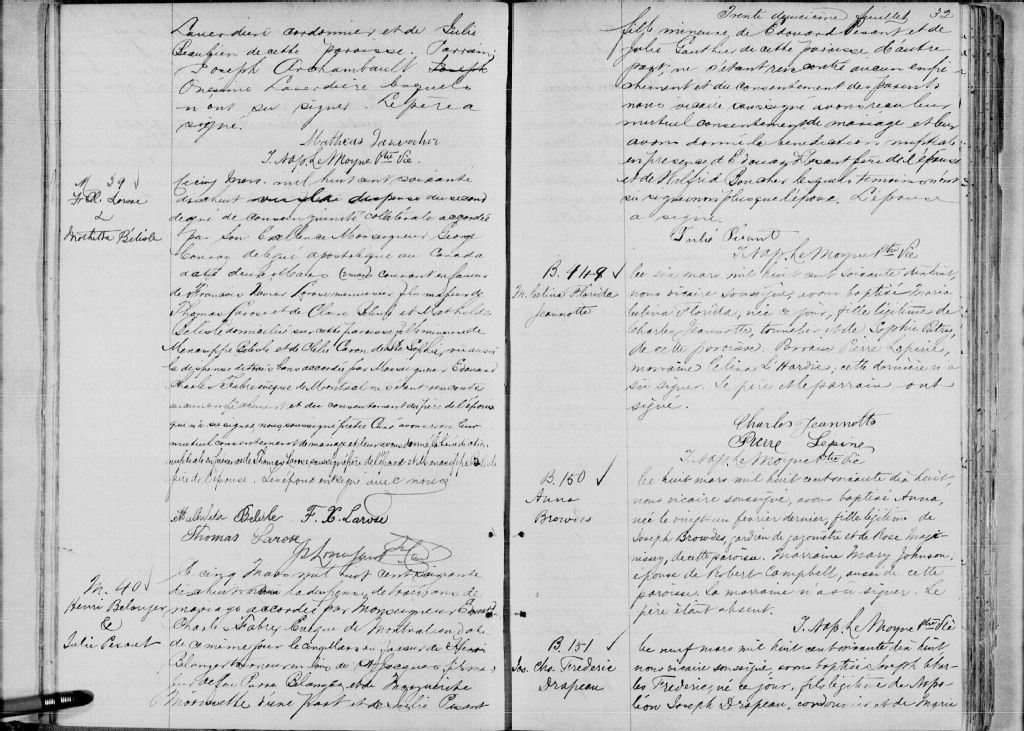 Laverdière cordonnier et de Julie
Beaulieu de cette paroisse. Parrain
Joseph Archambault Joseph
Onésime Laverdière lesquels
n'ont su signer. Le père a
signé.
J. Nap. Le Moyne Ptre Vic.
M 39
F. X. Larose
&
Mathilda Bélisle
Le cinq Mars mil huit cent soixante
dixhuit vu la dispense du second
degré de consanguinité collatérale accordée
par Son Excellence Monseigneur George
Conroy délégué apostolique au Canada
en date deux Mars courant en faveur
de François Xavier Larose menuisier fils majeur de
Thomas Larose et de et Mathilde
Bélisle domiciliée sur cette paroisse fille mineure de
Menasippe Bélisle et de Caron de Ste Sophie, vu aussi
la dispense de trois bans accordée par Monseigneur Edouard
Charles Fabre évêque de Montréal ne s'étant rencontré
aucun empêchement et du consentement du père de l'épouse
qui n'a su signer nous soussigné prêtre Curé avons reçu leur
mutuel consentement de mariage et leur avons donné la bénédiction
nuptiale en présence de Thomas Larose soussigné père de l'époux et de Menasippe Bélisle
père de l'épouse. Les époux ont signé avec nous
Mathilda Belisle F. X. Larose
Thomas Larose
M. 40
Henri Bélanger
&
Julie Pesant
Le cinq Mars mil huit cent soixante
dixhuit vu la dispense de trois bans de
mariage accordée par Monseigneur Edouard
Charles Fabre Evêque de Montréal en date
de ce même jour le cinq Mars en faveur de Henri
Bélanger de St Jacques fils ma-
jeur de feu Pierre Bélanger et de Marguerite
d'une part et de Julie Pesant
Trente deuxième feuillet 32
fille mineure de Edouard Pesant et de
Julie Gauthier de cette paroisse d'autre
part, ne s'étant rencontré aucun empê-
chement et du consentement des parents
nous vicaire soussigné avons reçu leur
mutuel consentement de mariage et leur
avons donné la bénédiction nuptiale
en présence de Edouard Pesant père de l'épouse
et de Wilfrid Boucher lesquels témoins n'ont
su signer non plus que l'époux. L'épouse
a signé.
Julie Pesant
J. Nap. Le Moyne Ptre Vic
B. 148
M. Celina Florida
Jeannotte
Le six mars mil huit cent soixante dix huit,
nous vicaire soussigné, avons baptisé Maria
Celina Florida, née ce jour, fille légitime de
Charles Jeannotte, tonnelier et de Sophie
de cette paroisse. Parrain Pierre Lepine,
marraine Celina L'Hardie; cette dernière n'a
su signer. Le père et le parrain ont
signé.
Charles Jeannotte
Pierre Lepine
J. Nap. Le Moyne Ptre Vic
B. 150
Anna
Browdes
Le huit mars mil huit cent soixante dix huit,
nous vicaire soussigné, avons baptisé Anna,
née le vingt un février dernier, fille légitime de
Joseph Browdes, gardien de gazomètre et de Rose
de cette paroisse. Marraine Mary Johnson,
épouse de Robert Campbell, aussi de cette
paroisse. La marraine n'a su signer. Le
père était absent.
J. Nap. Le Moyne Ptre Vic
B. 151
Jos. Chs. Frederic
Drapeau
Le neuf mars mil huit cent soixante dix huit
nous vicaire soussigné, avons baptisé Joseph Char-
les Frederic, né ce jour, fils légitime de Napo-
leon Joseph Drapeau, cordonnier et de Marie